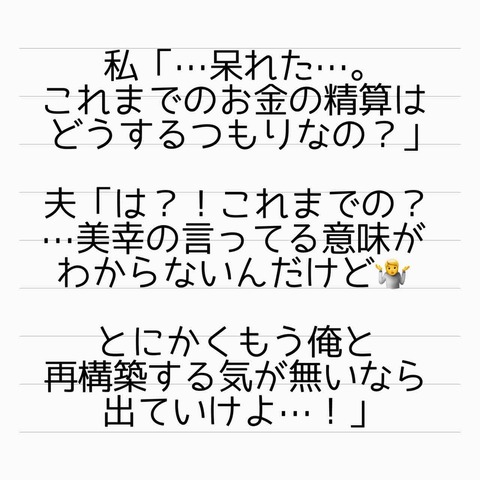 私「…呆れた…。
これまでのお金の精算は
どうするつもりなの?」
夫「は?!これまでの?
…美幸の言ってる意味が
わからないんだけど🤷‍♂️
とにかくもう俺と
再構築する気が無いなら
出ていけよ…!」